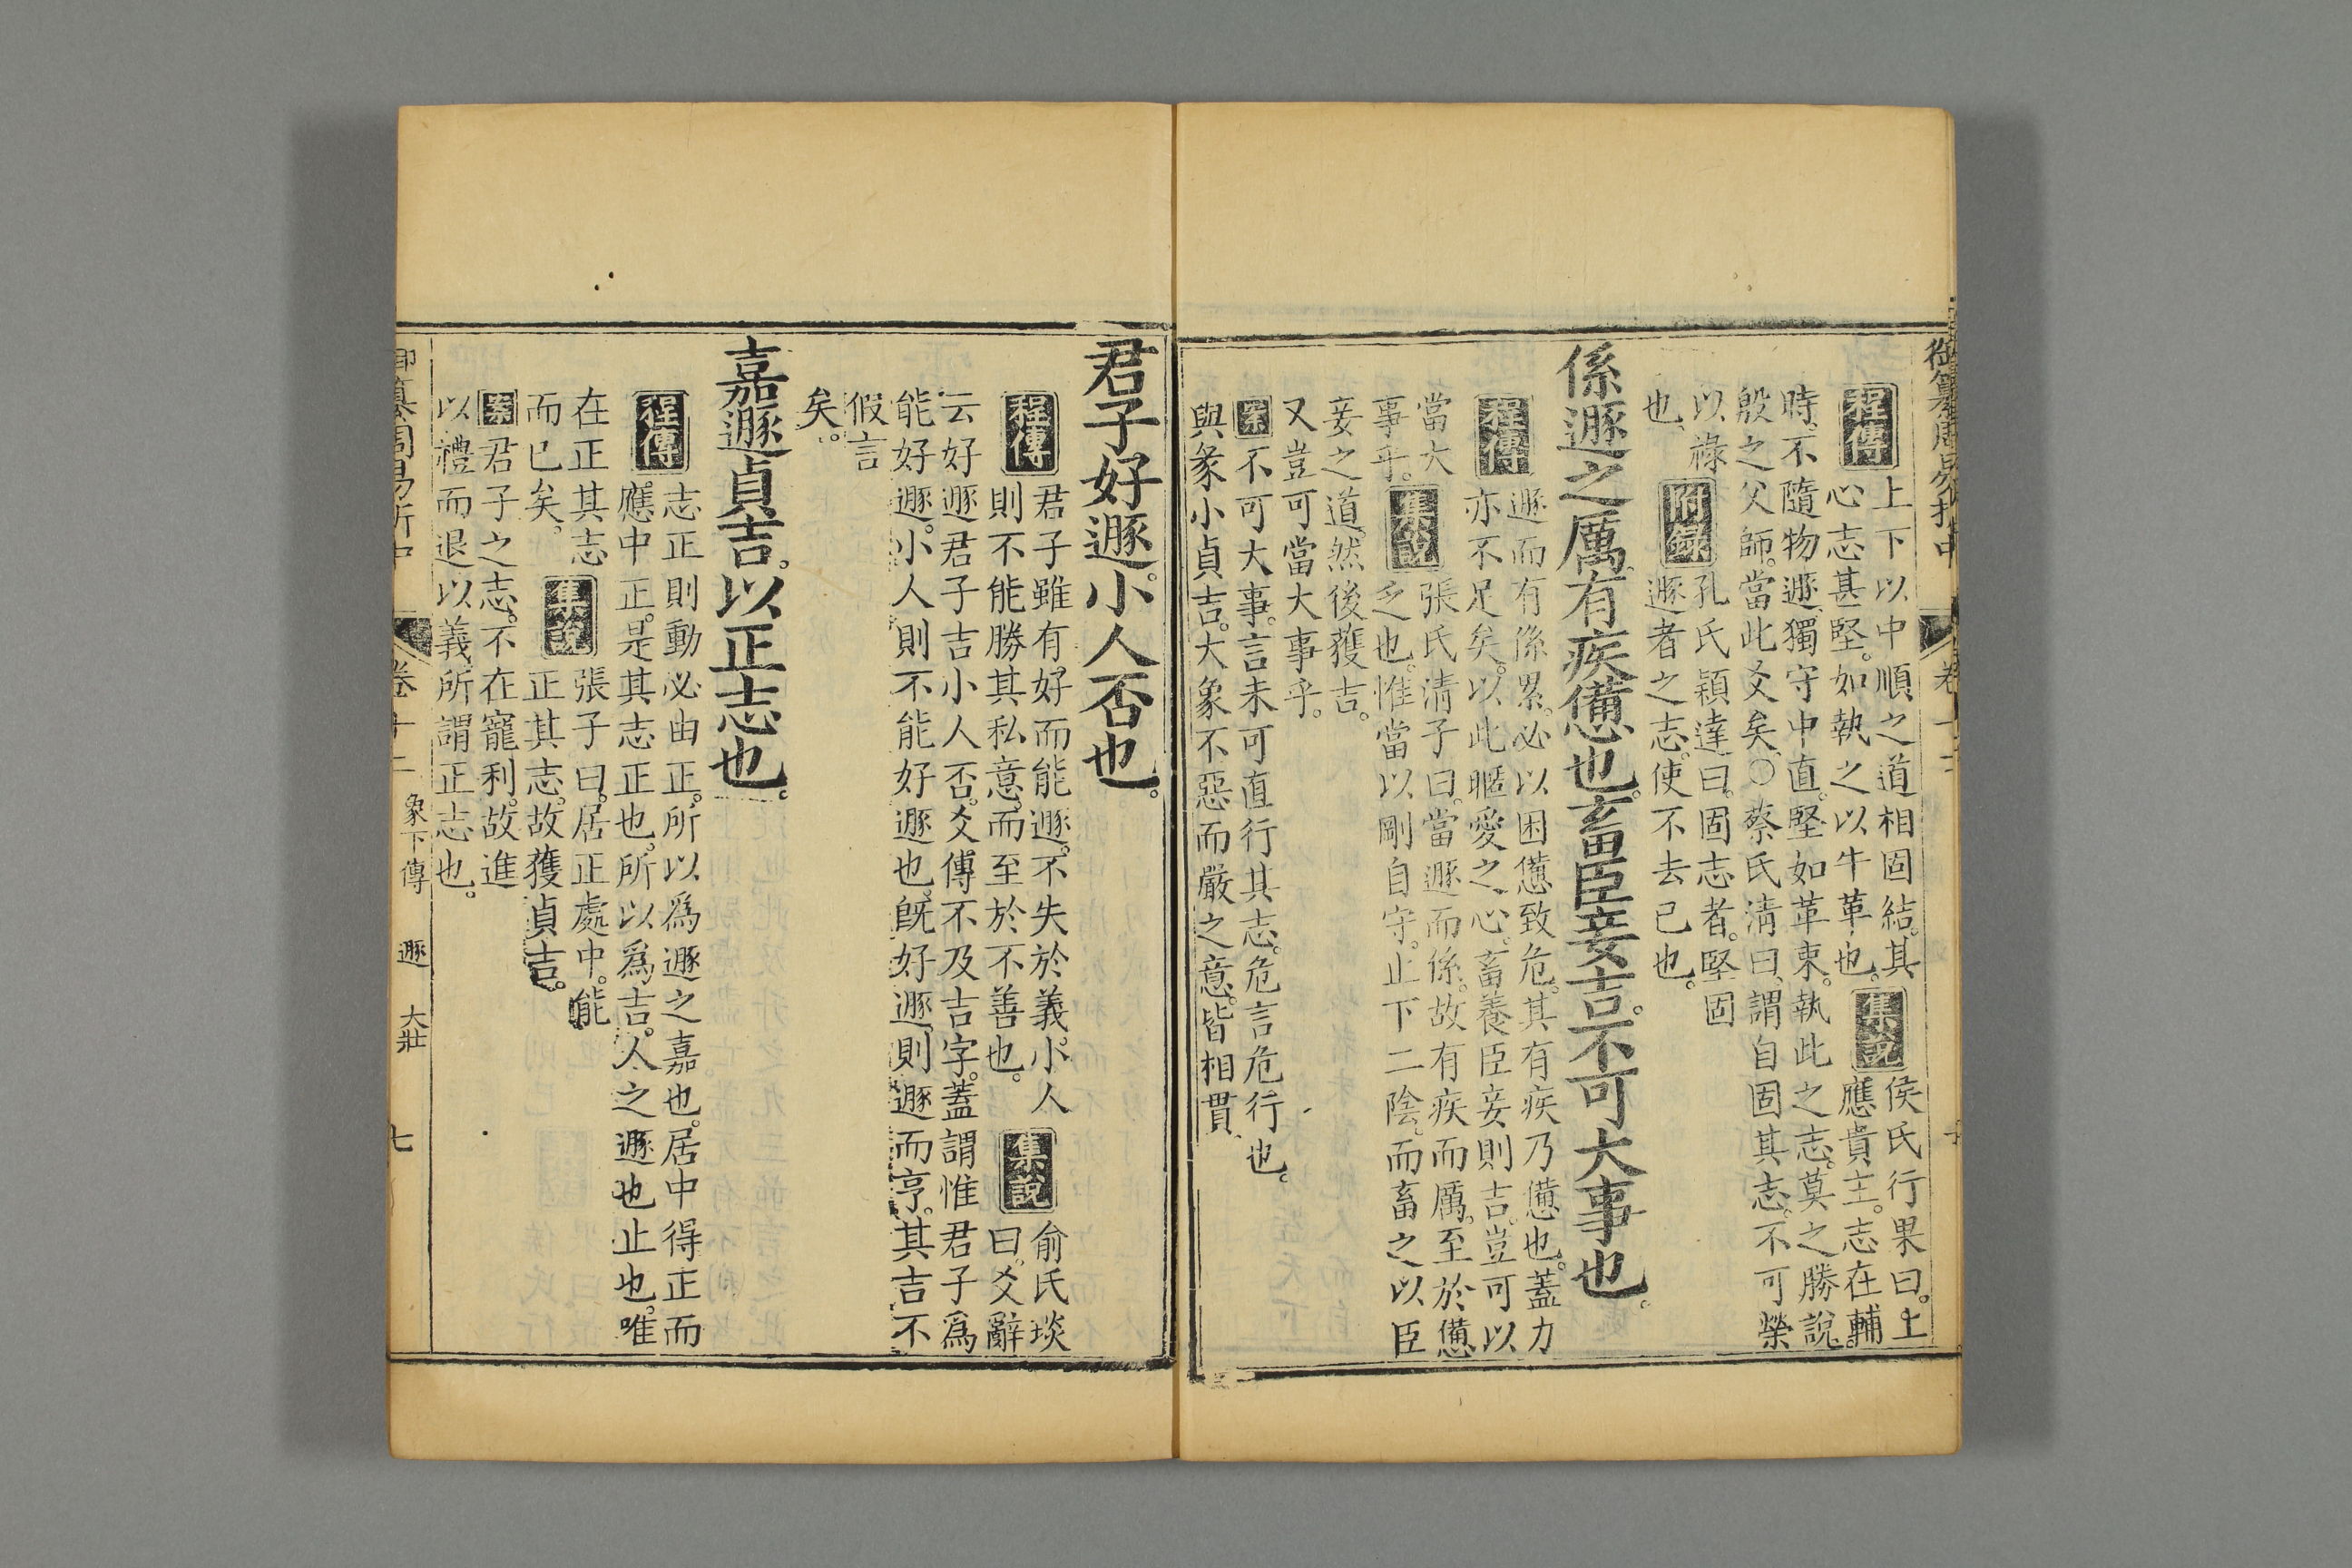 御纂周易折中 卷十二
程傳 上下以中順之道相固結。其 集說 侯氏行果曰。上
心志甚堅。如執之以牛革也。 應貴主。志在輔
時。不隨物遯。獨守中直。堅如革束。執此之志。莫之勝說。
殷之父師。當此爻矣。○蔡氏清曰。謂自固其志。不可榮
以祿 附錄 孔氏穎達曰。固志者。堅固
也。 遯者之志。使不去已也。
係遯之厲。有疾憊也。畜臣妾吉。不可大事也。
程傳 遯而有係累。必以困憊致危。其有疾乃憊也。蓋力
亦不足矣。以此暱愛之心。畜養臣妾則吉。豈可以
當大 集說 張氏清子曰。當遯而係。故有疾而厲。至於憊
事乎。 乏也。惟當以剛自守。止下二陰。而畜之以臣
妾之道。然後獲吉。
又豈可當大事乎。
案 不可大事。言未可直行其志。危言危行也。
與彖小貞吉。大象不惡而嚴之意。皆相貫。
君子好遯。小人否也。
程傳 君子雖有好而能遯。不失於義。小人 集說 俞氏琰
則不能勝其私意。而至於不善也。 曰。爻辭
云好遯君子吉小人否。爻傳不及吉字。蓋謂惟君子爲
能好遯。小人則不能好遯也。旣好遯則遯而亨。其吉不
假言
矣。
嘉遯貞吉。以正志也。
程傳 志正則動必由正。所以爲遯之嘉也。居中得正而
應中正。是其志正也。所以爲吉。人之遯也止也。唯
在正其志 集說 張子曰。居正處中。能
而已矣。 正其志。故獲貞吉。
案 君子之志。不在寵利。故進
以禮而退以義。所謂正志也。
御纂周易折中 卷十二 象下傳 遯 大壯 七